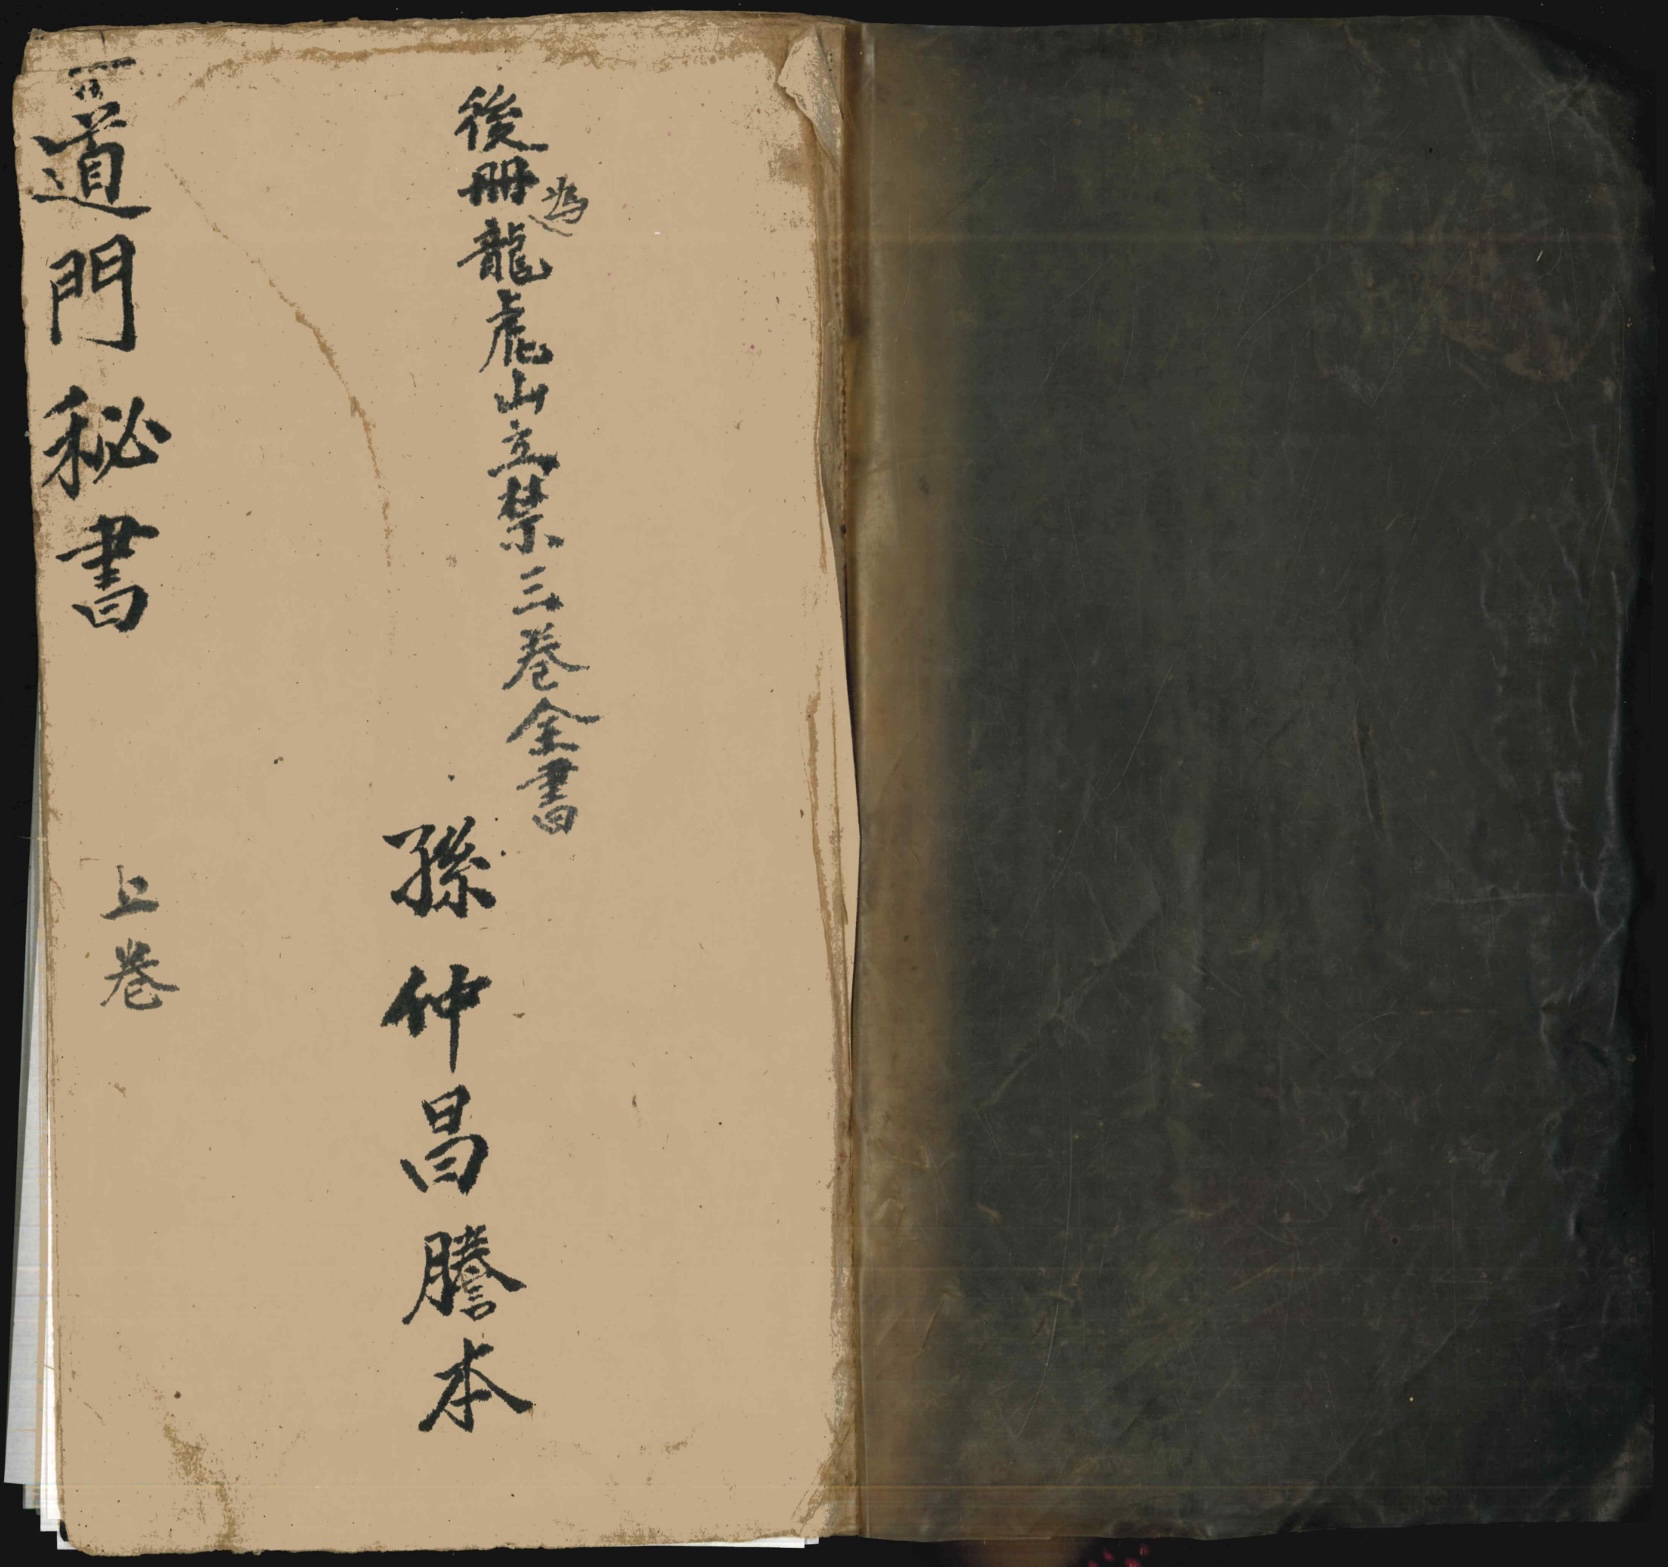 後冊為龍虎山立禁三卷全書
孫仲昌謄本
道門秘書 上卷